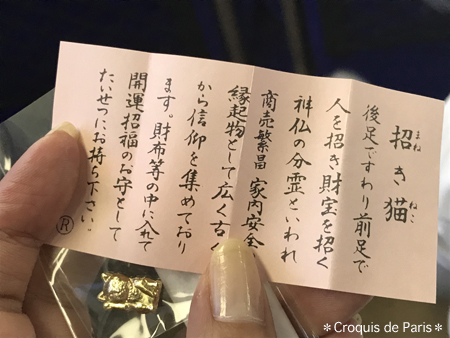 招き猫
まね ねこ
後足ですわり前足で
人を招き財宝を招く
神仏の分霊といわれ
商売繁昌 家内安全
縁起物として広く古く
から信仰を集めており
ます。財布等の中に入れて
開運招福のお守として
たいせつにお持ち下さい。
®
＊Croquis de Paris＊